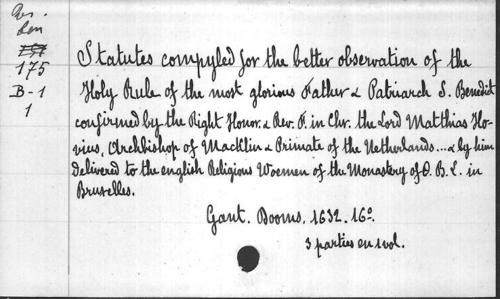 Res.
Lon
175
B-1
1
Statutes compyled for the better observation of the
Holy Rule of the most glorious Father & Patriarch S. Benedict
confirmed by the Right Honor. & Rev. F. in Chr. the Lord Matthias Ho-
vius, Archbishop of Macklin & Primate of the Netherlands...& by him
delivered to the english Religious Woemen of the Monastery of O. B. L. in
Bruselles.
Gant. Dooms, 1632. 16º.
3 parties en 1 vol.